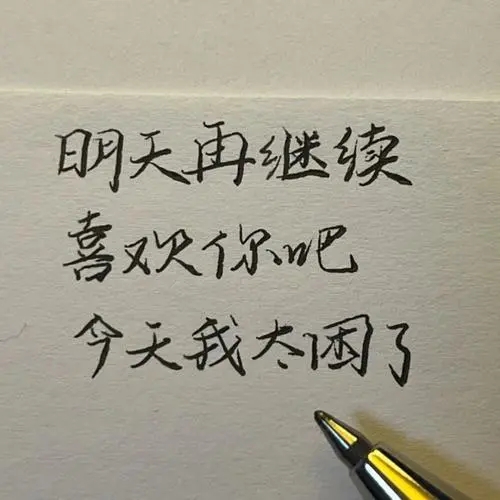 明天再继续
喜欢你吧
今天我太困了